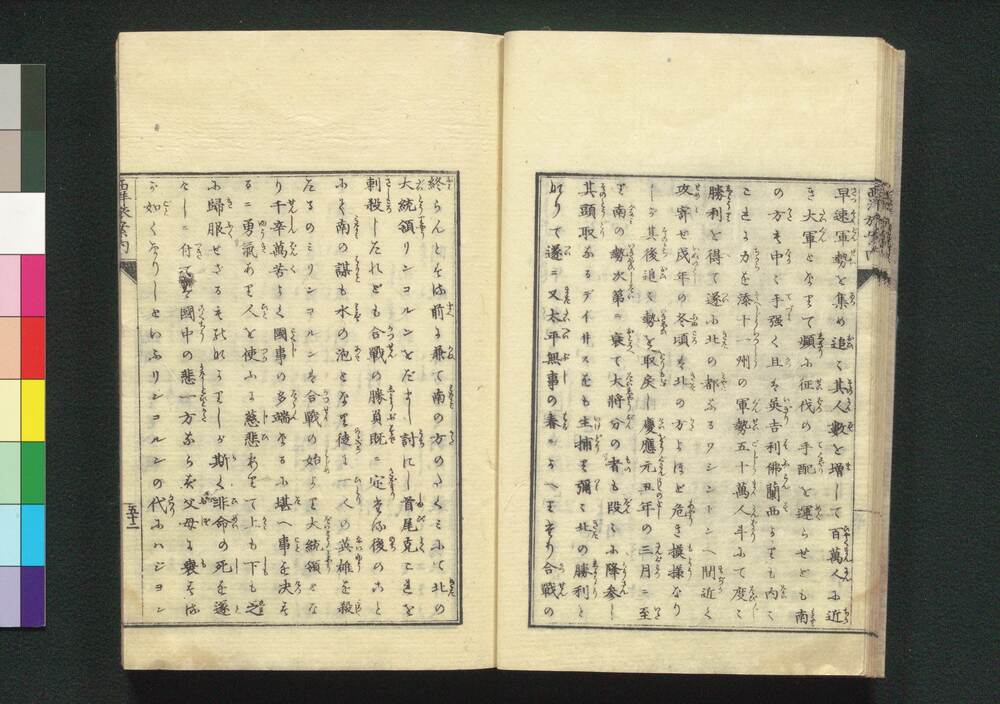 早速軍勢を集め追々其人數を増して百萬人に近
き大軍となりて頻に征伐の手配を運らせども南
の方も中々手强く且は英吉利佛蘭西よりも内々
これに力を添十一州の軍勢五十萬人斗にて度々
勝利を得て遂に北の都なるワシントンへ間近く
攻寄せ戌年の冬頃は北の方よほど危き摸様なり
しが其後追々勢を取戻し慶應元丑年の三月に至
り南の勢次第に衰て大將分の者も段々に降参し
其頭取なるデイヰスをも生捕り彌々北の勝利と
なりて遂に又太平無事の春にかへりたり合戰の
終らんとする前に兼て南の方のたくミにて北の
大統領リンコルンをだまし討にし首尾克これを
刺殺したれども合戰の勝負既に定たる後のこと
にて南の謀も水の泡となり徒に一人の英雄を殺
たるのミリンコルンは合戰の始より大統領とな
り千辛萬苦よく國事の多端なるに堪へ事を決す
るに勇氣あり人を使ふに慈悲ありて上も下も之
に歸服せざるものなかりしが斯く非命の死を遂
しに付ては國中の悲一方ならず父母を喪するが
如くなりしといふリンコルンの代にハジヨン
西洋旅案内
五十二